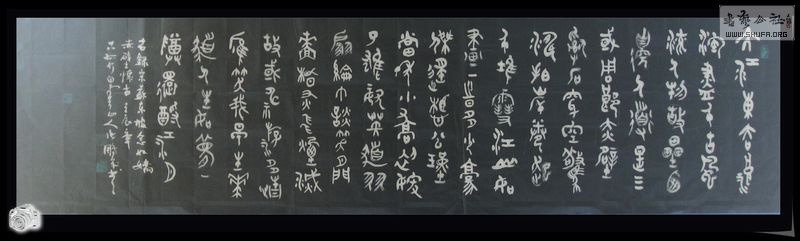 大江東去浪
淘盡千古風
流人物故壘西
邊人道是三
國周郎赤壁
亂石穿空驚
濤拍岸卷起
千堆雪江山如
畫一時多少豪
傑遙想公瑾
當年小喬初嫁
了雄姿英發羽
扇綸巾談笑間
檣櫓灰飛煙滅
故國神游多情
應笑我早生華
髮人生如夢一
尊還酹江月
右錄宋蘇東坡念奴嬌
赤壁懷古
書藝公社
WWW.SHUFA.ORG